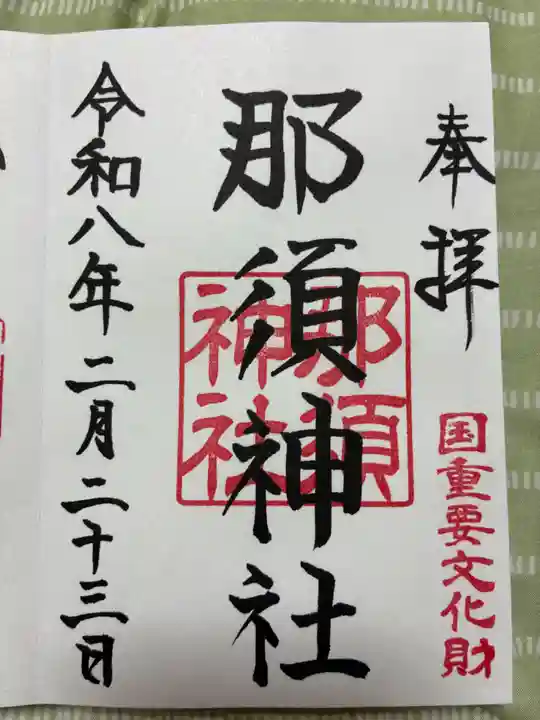 奉拝
国重要文化財
那須神社
那須
神社
令和八年二月二十三日